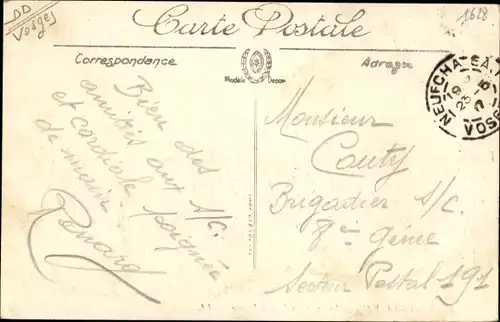 DD
Vosges
1628
Carte Postale
Correspondance
Adresse
Modèle Déposé
NEUFCHATEAU
VOSGES
Bien des
amitiés aux S/C.
et cordiale poignée
de main
Renard
Monsieur
Couty
Brigadier S/C.
8è Génie
Secteur Postal 191